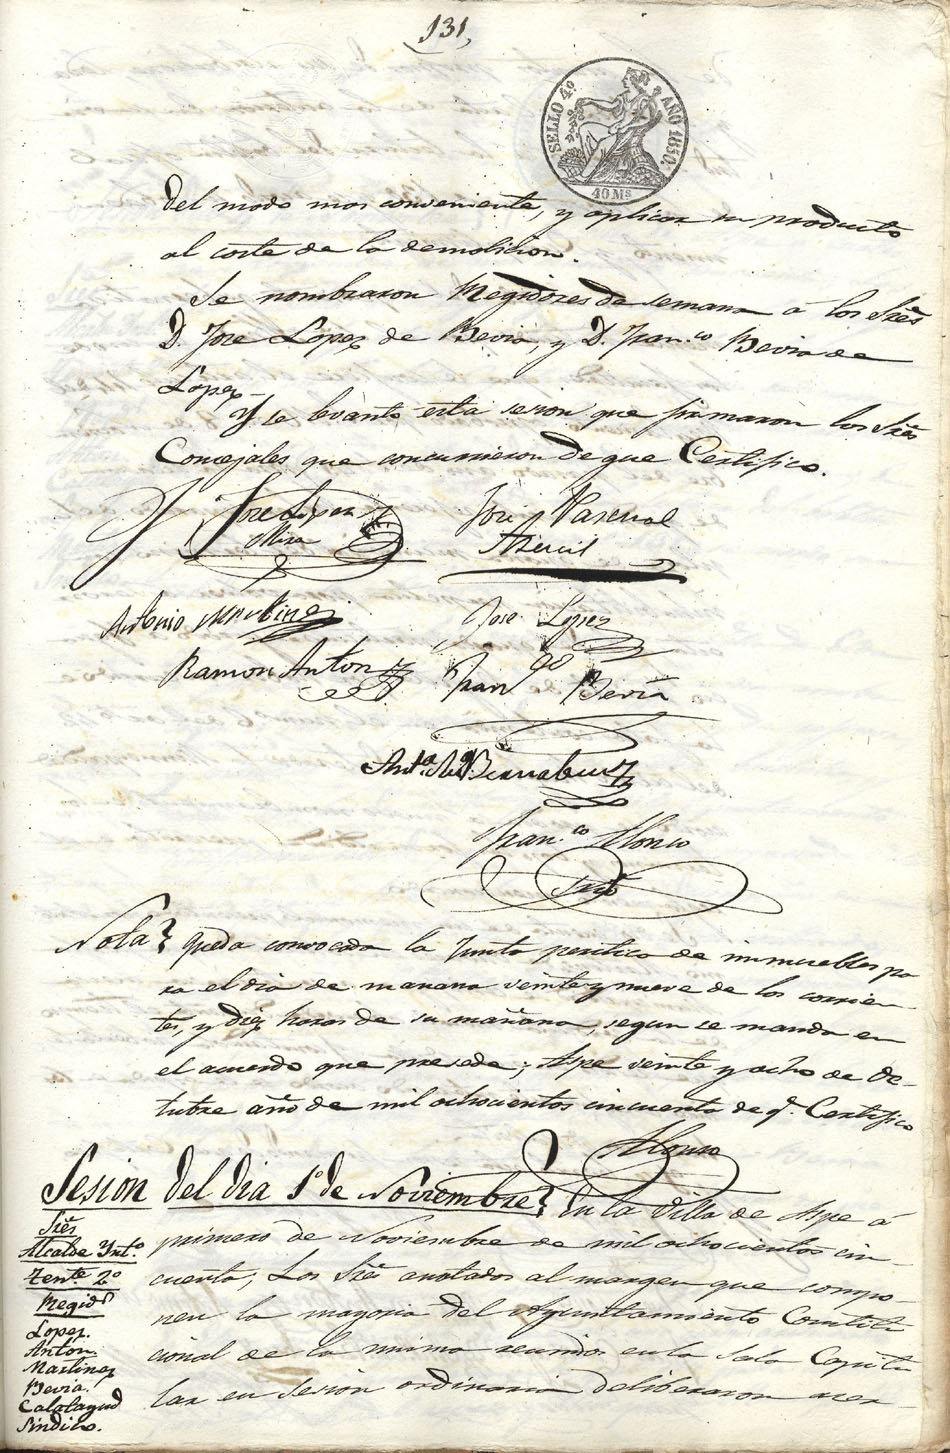 131,
SELLO 4º AÑO 1850.
40 Ms
del modo mas conveniente, y aplicar su producto
al coste de la demolicion.
Se nombraron Regidores de semana á los Sres
D. Jose Lopez de Bevia, y D. Fran.co Bevia de
Lopez.
Y se levanto esta sesion que firmaron los Sres
Concejales que concurrieron de que Certifico.
Jose Lopez Jose Pascual
Mira
Antonio Martinez Jose Lopez
Ramon Anton Fran.co Bevia
Fran.co Alonso
Srio
Nota} queda convocada la Junta pericial de inmuebles pa
ra el dia de manana veinte y nueve de los corrien-
tes, y diez horas de su mañana, segun se manda en
el acuerdo que presede; Aspe veinte y ocho de Oc-
tubre año de mil ochocientos cincuenta de q.e Certifico
Alonso
Sesion del dia 1º de Noviembre} En la Villa de Aspe á
primero de Noviembre de mil ochocientos cin-
cuenta; Los Sres anotados al margen que compo-
nen la mayoria del Ayuntamiento Constitu
cional de la misma reunidos en la Sala Capitu
lar en sesion ordinaria deliberaron acer-
Sres
Alcalde Int.º
Tente. 2º
Regid.s
Lopez.
Anton.
Martinez
Bevia.
Calatayud
Sindico.